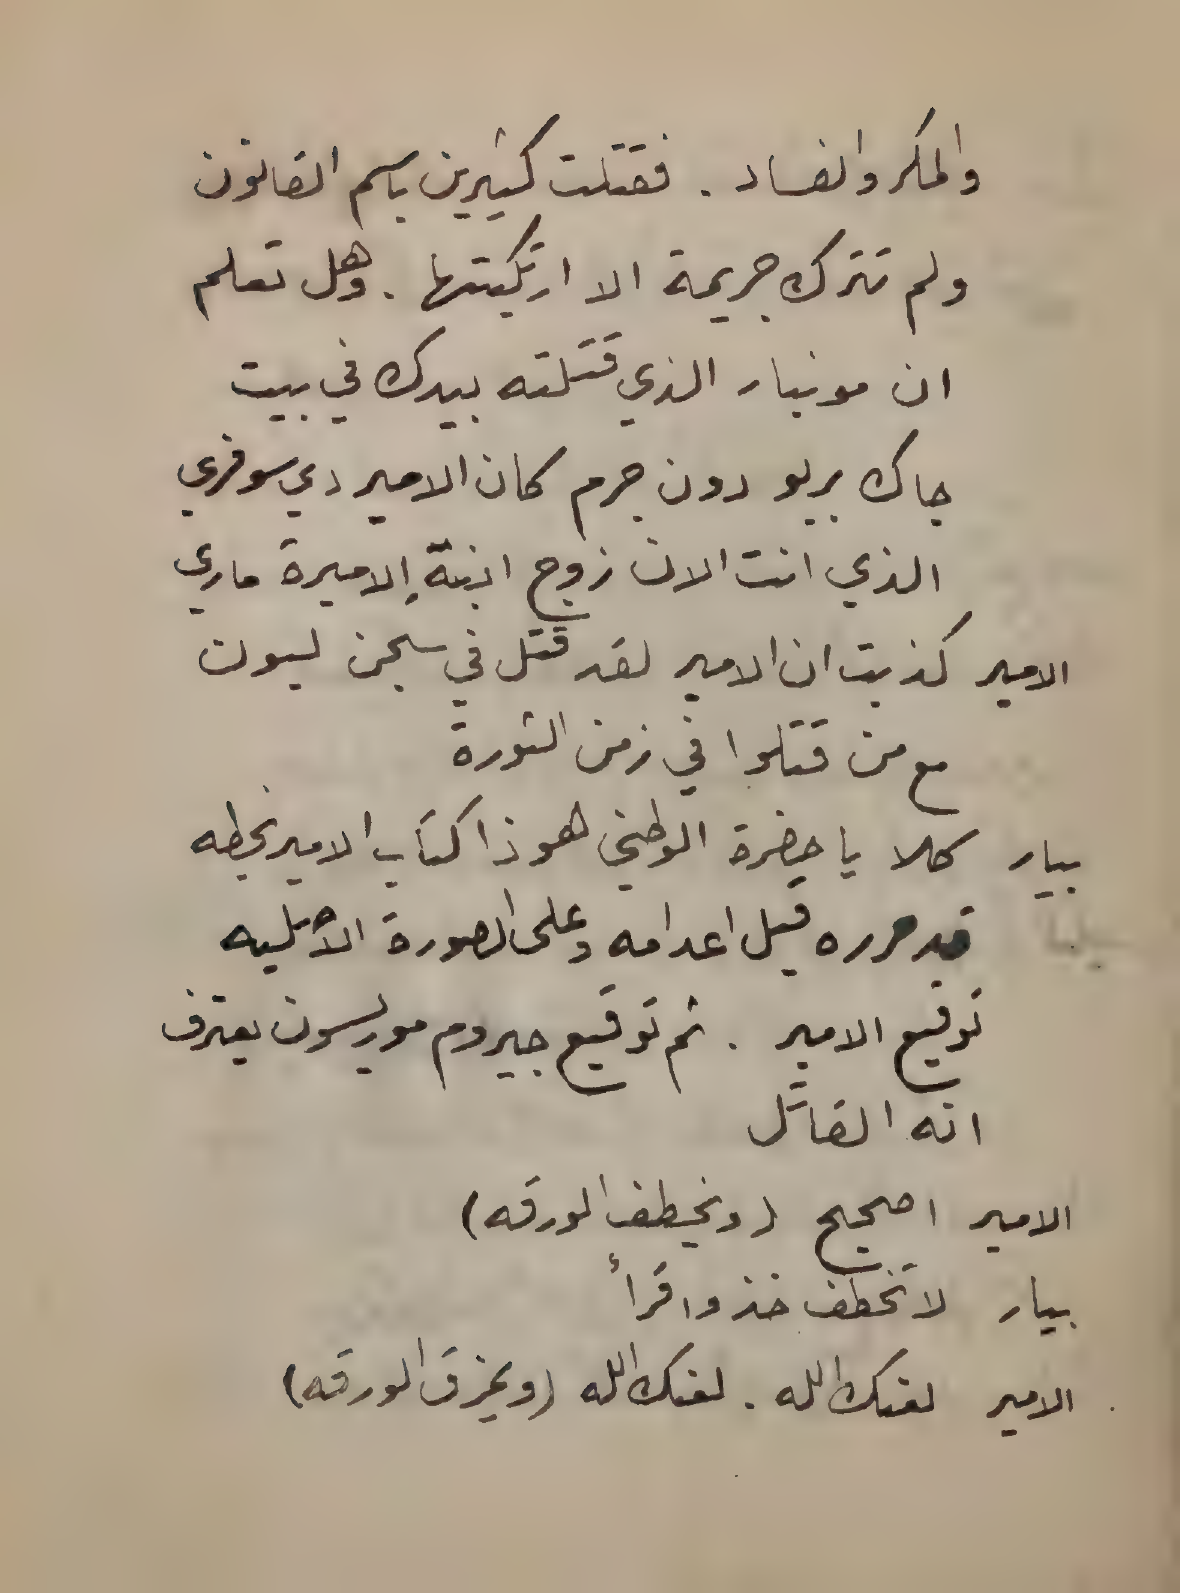 والمكر والفساد . فقتلت كثيرين باسم القانون
ولم تترك جريمة الا ارتكبتها . وهل تعلم
ان مونبار الذي قتلته بيدك في بيت
جاك بريو دون جرم كان الامير دي سوفري
الذي انت الان زوج ابنة الاميرة ماري
الامير كذبت ان الامير لقد قتل في سجن ليون
مع من قتلوا في زمن الثورة
بيار كلا يا حضرة الوطني هوذا كتاب الامير بخطه
قد حرره قبل اعدامه وعلى الصورة الأصليه
توقيع الامير . ثم توقيع جيروم موريسون يعترف
انه القاتل
الامير اصحيح (ويخطف الورقه)
بيار لا تخطف خذ واقرأ
الامير لعنك الله . لعنك الله (ويمزق الورقه)